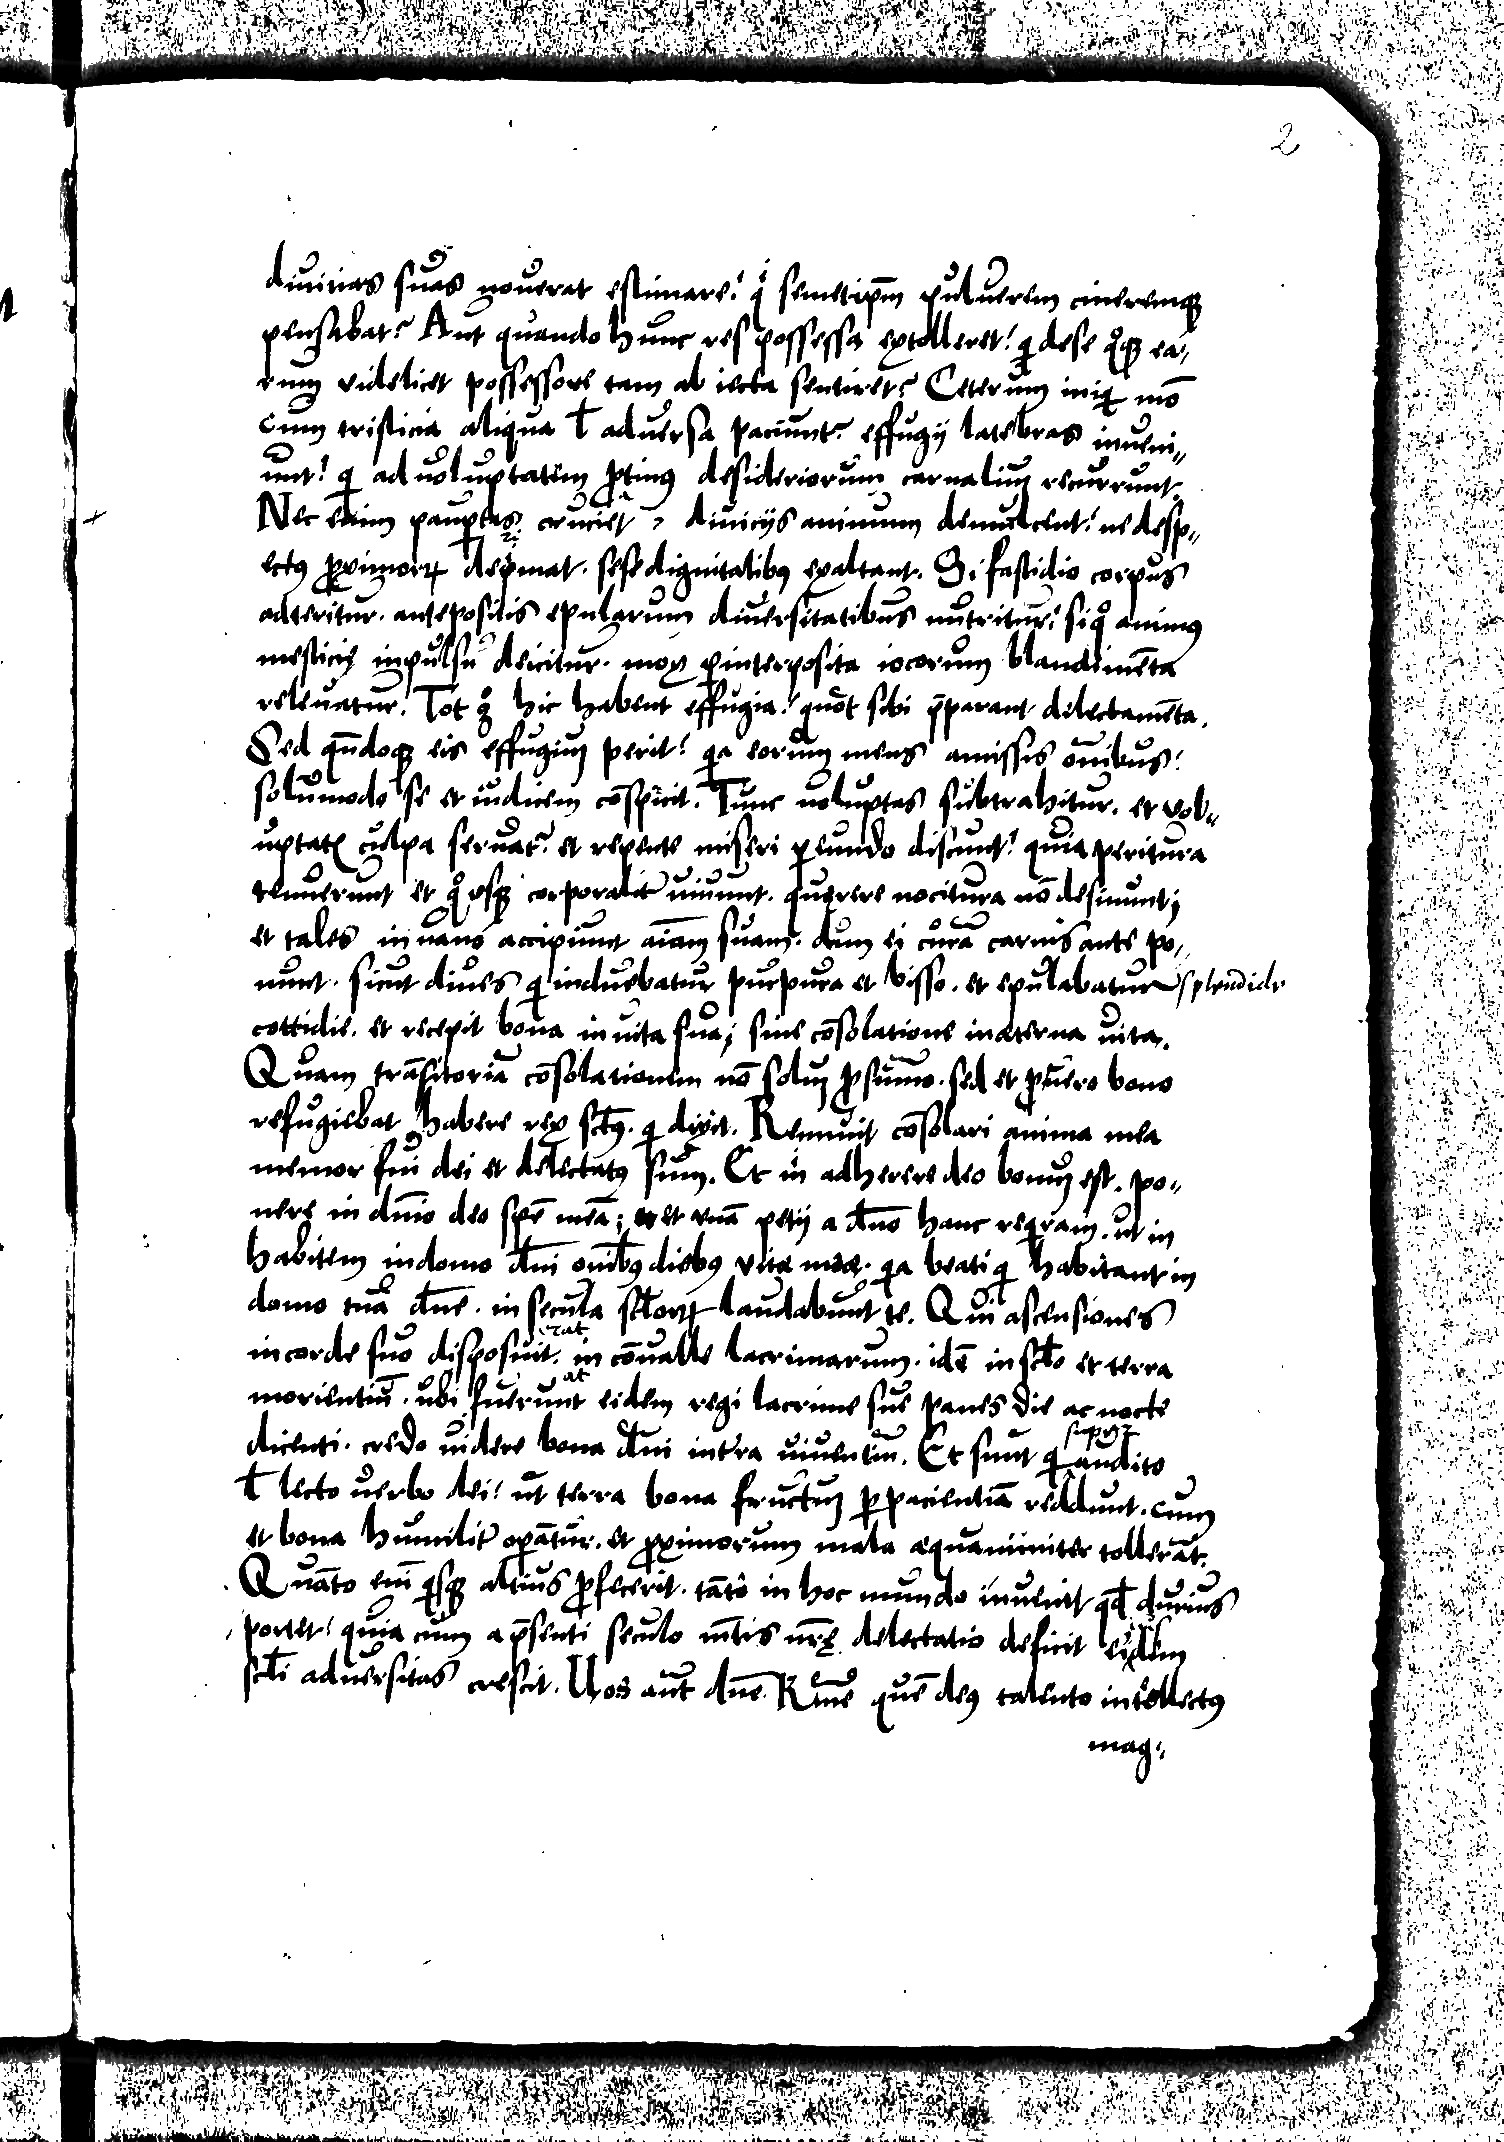 2
diuitias suas nouerat estimare? qͥ semetip̄m puluerem cineremqꝫ
pensabat? Aut quando hunc res possessa extolleret? qͥ dese qͦqꝫ ea⸗
rum videlicet possessore tam ab iecta sentiret? Ceterum iniqͥ mō
cum tristicia aliqua ł aduersa paciunt᷑. effugij latebras inueni⸗
unt! qͥ ad uoluptatem ꝓtinꝰ desideriorum carnalium recurrunt.
Nec enim pauꝑtas cruciet, diuicijs animum demulcent! ne desp⸗
ectꝰ ꝓximoꝝ deprimat. sese dignitatibꝰ exaltant. Si fastidio corpus
adteritur. antepositis epularum diuersitatibus nutritur! siqͦ animꝰ
mesticię inpulsu deicitur. mox ꝑ interposita iocorum blandimēta
releuatur. Tot gͦ hic habent effugia! quot sibi p̄parant delectamēta.
Sed qn̄doqꝫ eis effugiuꝫ perit! qͥa eorum mens amissis om̄ibus!
solūmodo se et iudicem cōspicit. Tunc uoluptas subtrahitur. et vol⸗
uptatꝭ culpa seruat᷑. et repente miseri ꝑeundo discunt! quia peritura
tenuerunt et qͦusqꝫ corporalit᷑ uiuunt. querere nocitura nō desinunt;
et tales in uano accipiunt aīam suam. dum ei curā carnis ante po⸗
nunt. sicut diues qͥ induebatur purpura et bisso. et epulabatur splendide
cottidie. et recepit bona in uita sua; sine cōsolatione in æterna uita.
Quam trāsitoriā cōsolationem nō soluꝫ ꝓ sūmo. sed et ꝓ uero bono
refugiebat habere rex sct̄ꝰ. qͥ dixit. Rennuit cōsolari anima mea
memor fui dei et delectatꝰ sum. Et in adherere deo bonuꝫ est. po⸗
nere in dn̄o deo spē meā; et vnā petij a dn̄o hanc reqͥram. ut in
habitem in domo dn̄i om̄ibꝰ diebꝰ vitæ meæ. qͥa beati qͥ habitant in
domo tua dn̄e. in secula scl̄oꝝ laudabunt te. Qui ascensiones
in corde suo disposuit. in cōualle lacrimarum. idē in scl̄o et terra
morientiū. ubi fuerunt eidem regi lacrime sue panes die ac nocte
dicenti. credo uidere bona dn̄i in terra uiuentiū. Et sunt qͥ audito
ł lecto uerbo dei! ut terra bona fructuꝫ ꝑ pacientiā reddunt. cum
et bona humilit᷑ operāt᷑. et ꝓximorum mala æquanimiter tollerāt.
Quāto eni qͥsqꝫ altius ꝓfecerit. tāto in hoc mundo inuenit qd̄ durius
portet! quia cum a p̄senti seculo mētis nr̄ę delectatio deficit eiusdem
scl̄i aduersitas crescit. Uos aut᷑ dn̄e quē deꝰ talento intellectꝰ
mag⸗